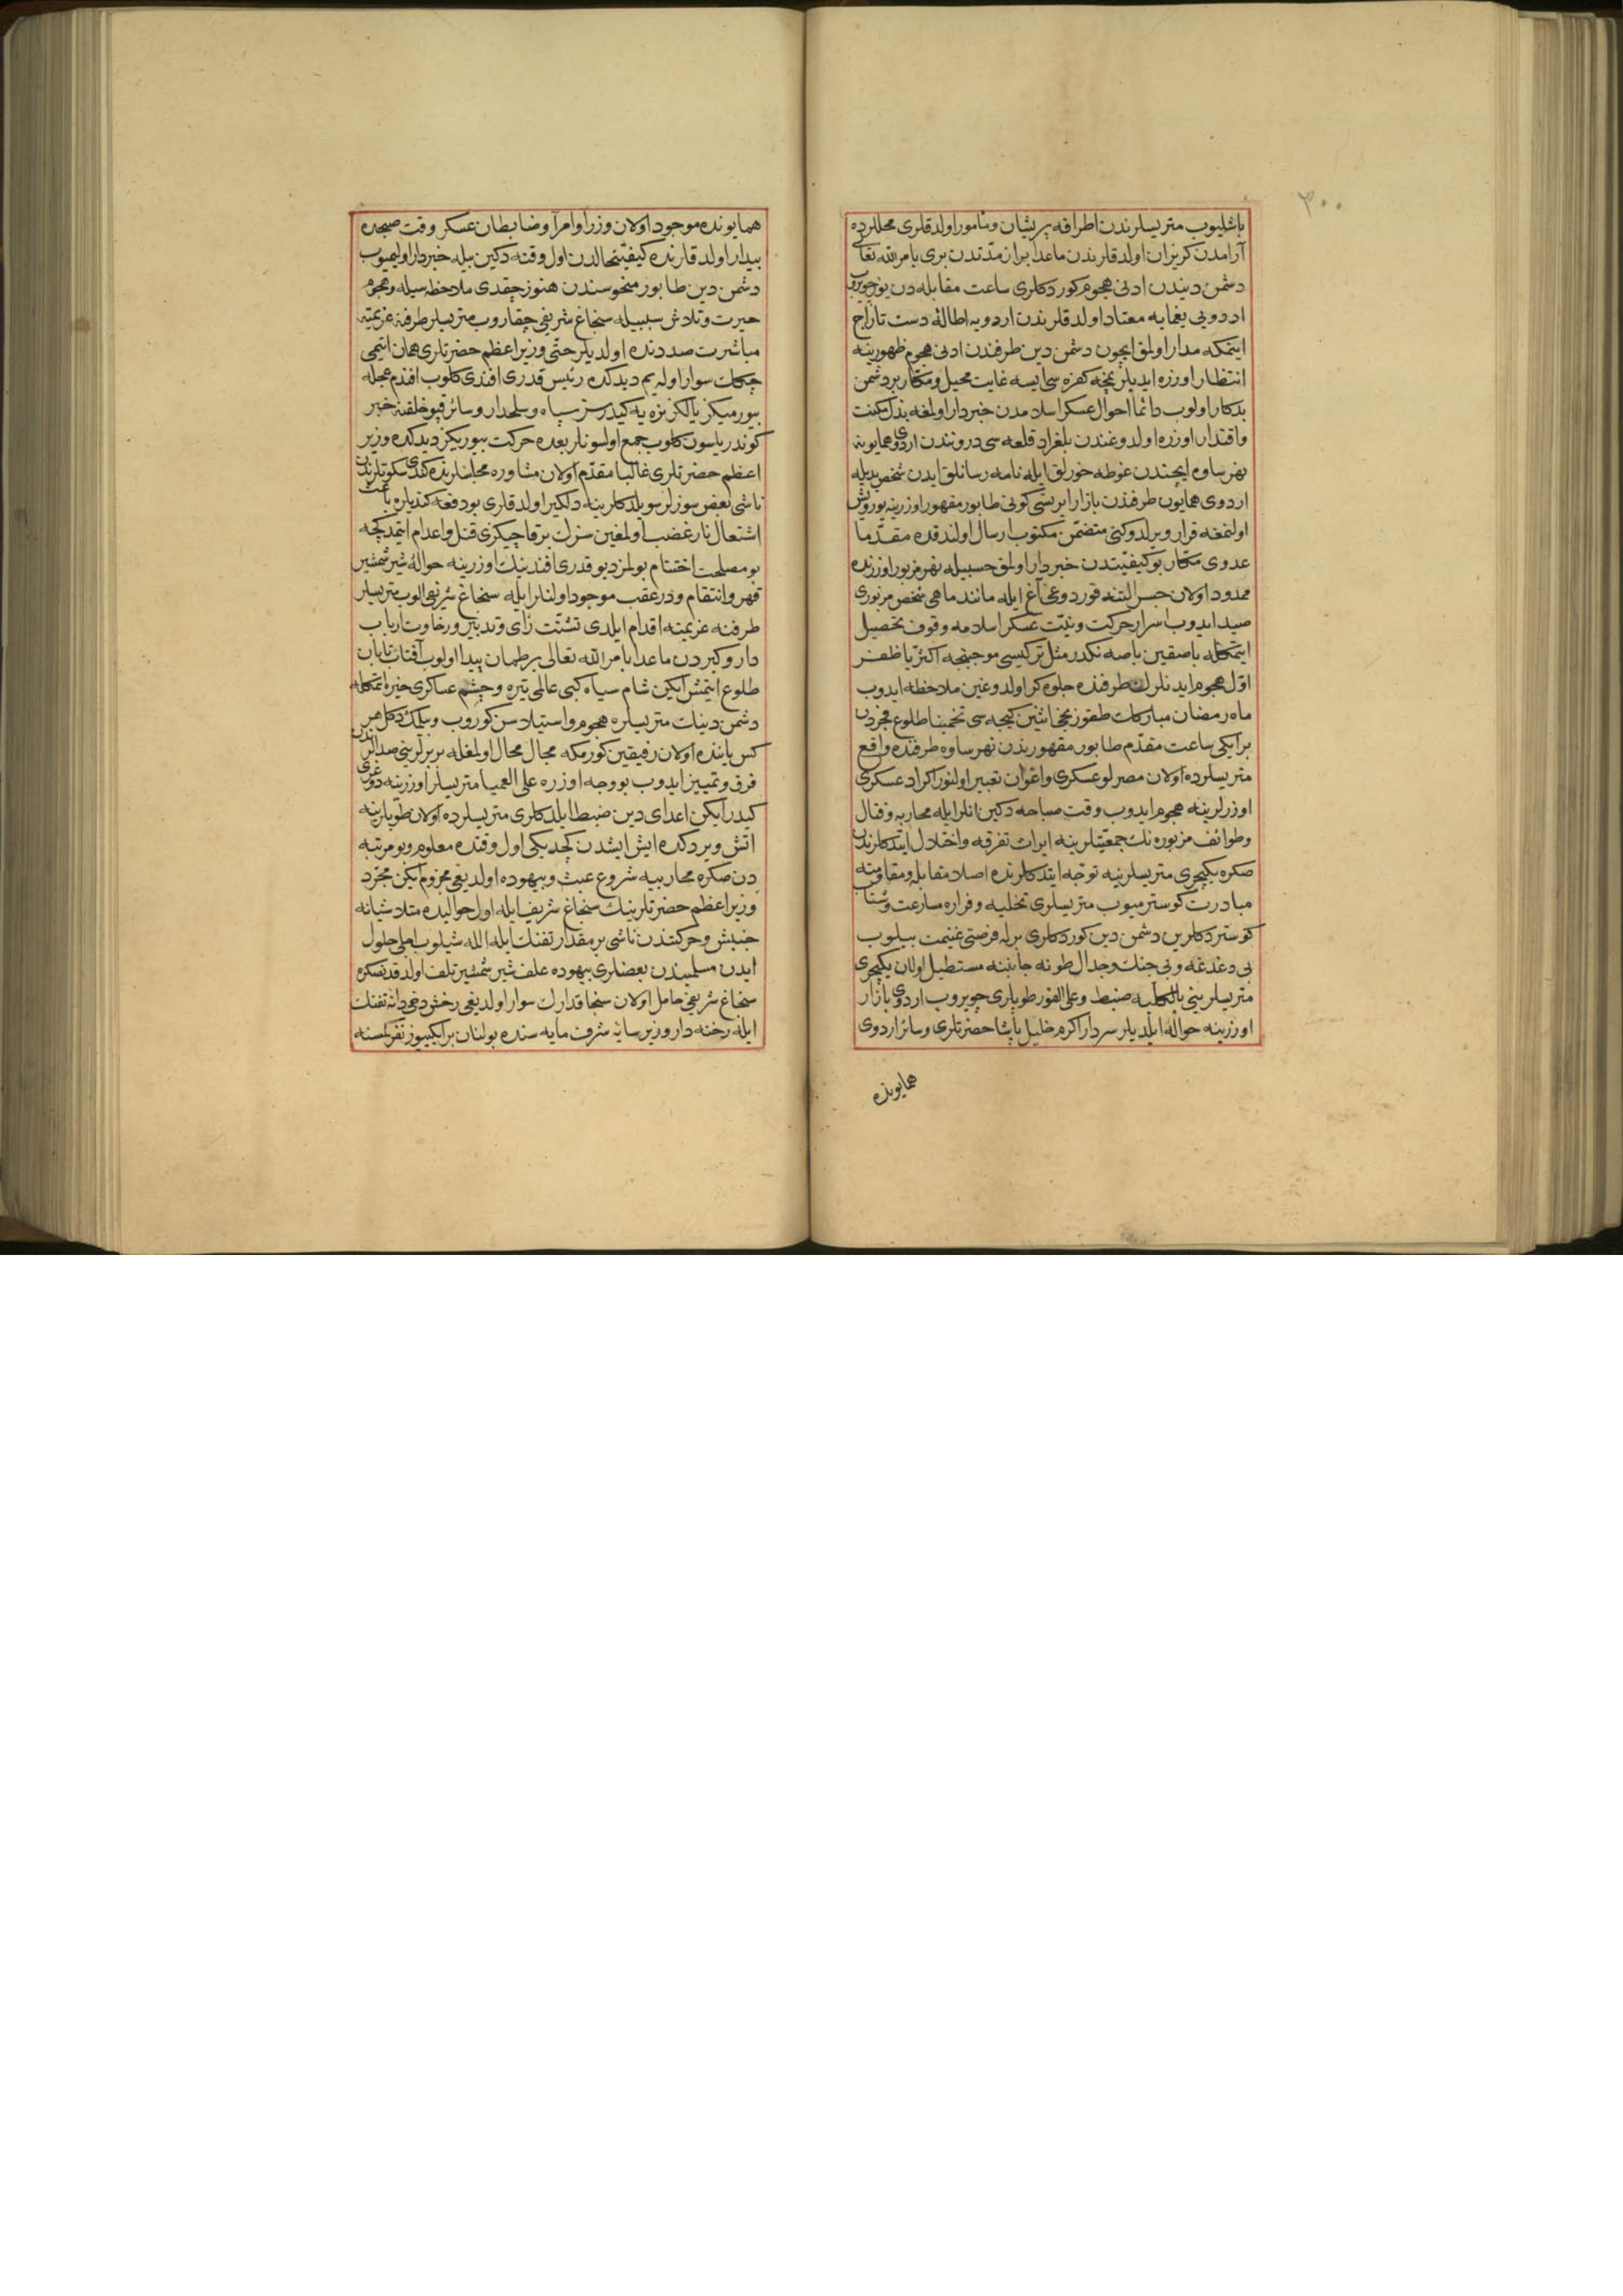 ٣٠٠
باشليوب متريسلرندن اطرافه پريشان ومأمور اولدقلرى محللرده
آرامدن كريزان اولدقلرندن ماعدا بر ان مدتدن برى بامر الله تعالى
دشمن ديندن ادنى هجوم كوردكلرى ساعت مقابله دن يوز چويروب
اردويى يغمايه معتاد اولدقلرندن اردويه اطالۀ دست تاراج
ايتمكه مدار اولمق ايچون دشمن دين طرفندن ادنى هجوم ظهورينه
انتظار اوزره ايديلر نيجه كفره سى ايسه غايت محيل ومكار بر دشمن
بدكار اولوب دائما احوال عسكر اسلامدن خبردار اولمغه بذل مكنت
واقتدار اوزره اولدوغندن بلغراد قلعه سى درونندن اردوى همايونه
نهر ساوه ايچندن غوطه خورلق ايله نامه رسانلق ايدن شخص يديله
اردوى همايون طرفندن بازار ايرتسى كونى طابور مقهور اوزرينه يورويش
اولنمغه قرار ويرلدوكنى متضمن مكتوب ارسال اولندقده مقدما
عدوى مكار بو كيفيتدن خبردار اولمق حسبيله نهر مزبور اوزرنده
ممدود اولان جسر التنه قوردوغى آغ ايله مانند ماهى شخص مزبورى
صيد ايدوب اسرار حركت ونيت عسكر اسلامه وقوف تحصيل
ايتمكله باصقين باصه نكدر مثل تركيسى موجبنجه اكثريا ظفر
اول هجوم ايدنلرك طرفنده جلوه كر اولدوغين ملاحظه ايدوب
ماه رمضان مباركك طقوزنجى اثنين كيجه سى تخمينا طلوع فجردن
بر ايكى ساعت مقدم طابور مقهورندن نهر ساوه طرفنده واقع
متريسلرده اولان مصرلو عسكرى واغوان تعبير اولنور اكراد عسكرى
اوزرلرينه هجوم ايدوب وقت صباحه دكين انلر ايله محاربه وقتال
وطوائف مزبوره نك جمعيتلرينه ايراث تفرقه واختلال ايتدكلرندن
صكره يكيچرى متريسلرينه توجه ايتدكلرنده اصلا مقابله ومقاومته
مبادرت كوسترميوب متريسلرى تخليه وفراره مسارعت وشتاب
كوستردكلرين دشمن دين كوردكلرى برله فرصتى غنيمت بيلوب
بى دغدغه وبى جنك وجدال طونه جانبنه مستطيل اولان يكيچرى
متريسلرينى بالكليه ضبط وعلى الفور طوپلرى چويروب اردوى بازار
اوزرينه حواله ايلديلر سردار اكرم خليل پاشا حضرتلرى وسائر اردوى
همايونده
همايونده موجود اولان وزرا وامرا وضابطان عسكر وقت صبحده
بيدار اولدقلرنده كيفيت حالدن اول وقته دكين بيله خبردار اولميوب
دشمن دين طابور منحوسندن هنوز چقدى ملاحظه سيله وهجوم
حيرت وتلاش سببيله سنجاغ شريفى چقاروب متريسلر طرفنه عزيمته
مباشرت صددنده اولديلر حتى وزير اعظم حضرتلرى همان اتيمى
چكك سوار اوله يم ديدكده رئيس قدرى افندى كلوب افندم عجله
بيورميكز يالكز نره يه كيدرسز سپاه وسلحدار وسائر قپو خلقنه خبر
كوندريلسون كلوب جمع اولسونلر بعده حركت بيوريكز ديدكده وزير
اعظم حضرتلرى غالبا مقدم اولان مشاوره مجلسلرنده كندى سكوتلرندن
ناشى بعض سوزلر سويلدكلرينه دلكير اولدقلرى بو دفعه كنديلره باعث
اشتعال نار غضب اولمغين سزك برقاچكزى قتل واعدام ايتمدكجه
بو مصلحت اختتام بولمز ديو قدرى افندينك اوزرينه حوالۀ شير شمشير
قهر وانتقام ودر عقب موجود اولنلر ايله سنجاغ شريفى الوب متريسلر
طرفنه عزيمته اقدام ايلدى تشتت رأى وتدبير ورخاوت ارباب
دار وكيردن ماعدا بامر الله تعالى بر طمان پيدا اولوب آفتاب تابان
طلوع ايتمش ايكن شام سياه كبى عالمى تيره وچشم عساكرى خيره ايتمكله
دشمن دينك متريسلره هجوم واستيلاسن كوروب وبيلمك دكل هر
كس ياننده اولان رفيقين كورمكه مجال محال اولمغله بربرلرينى صدالرندن
فرق وتمييز ايدوب بو وجه اوزره على العميا متريسلر اوزرينه دوغرى
كيدر ايكن اعداى دين ضبط ايلدكلرى متريسلرده اولان طوپلرينه
اتش ويردكده ايش ايشدن كچديكى اول وقتده معلوم وبو مرتبه
دن صكره محاربيه شروع عبث وبيهوده اولديغى مجزوم ايكن مجرد
وزير اعظم حضرتلرينك سنجاغ شريف ايله اول حواليده متلاشيانه
جنبش وحركتندن ناشى بر مقدار تفنك ايله الله شيلوب اعلى حلول
ايدن مسلميندن بعضلرى بيهوده علف شير شمشير تلف اولدقدنصكره
سنجاغ شريفى حامل اولان سنجاقدارك سوار اولديغى رخش دخى دانۀ تفنك
ايله رخنه دار و وزير سايۀ شرف مايه سنده بولنان بر ايكيوز نفر كسنه